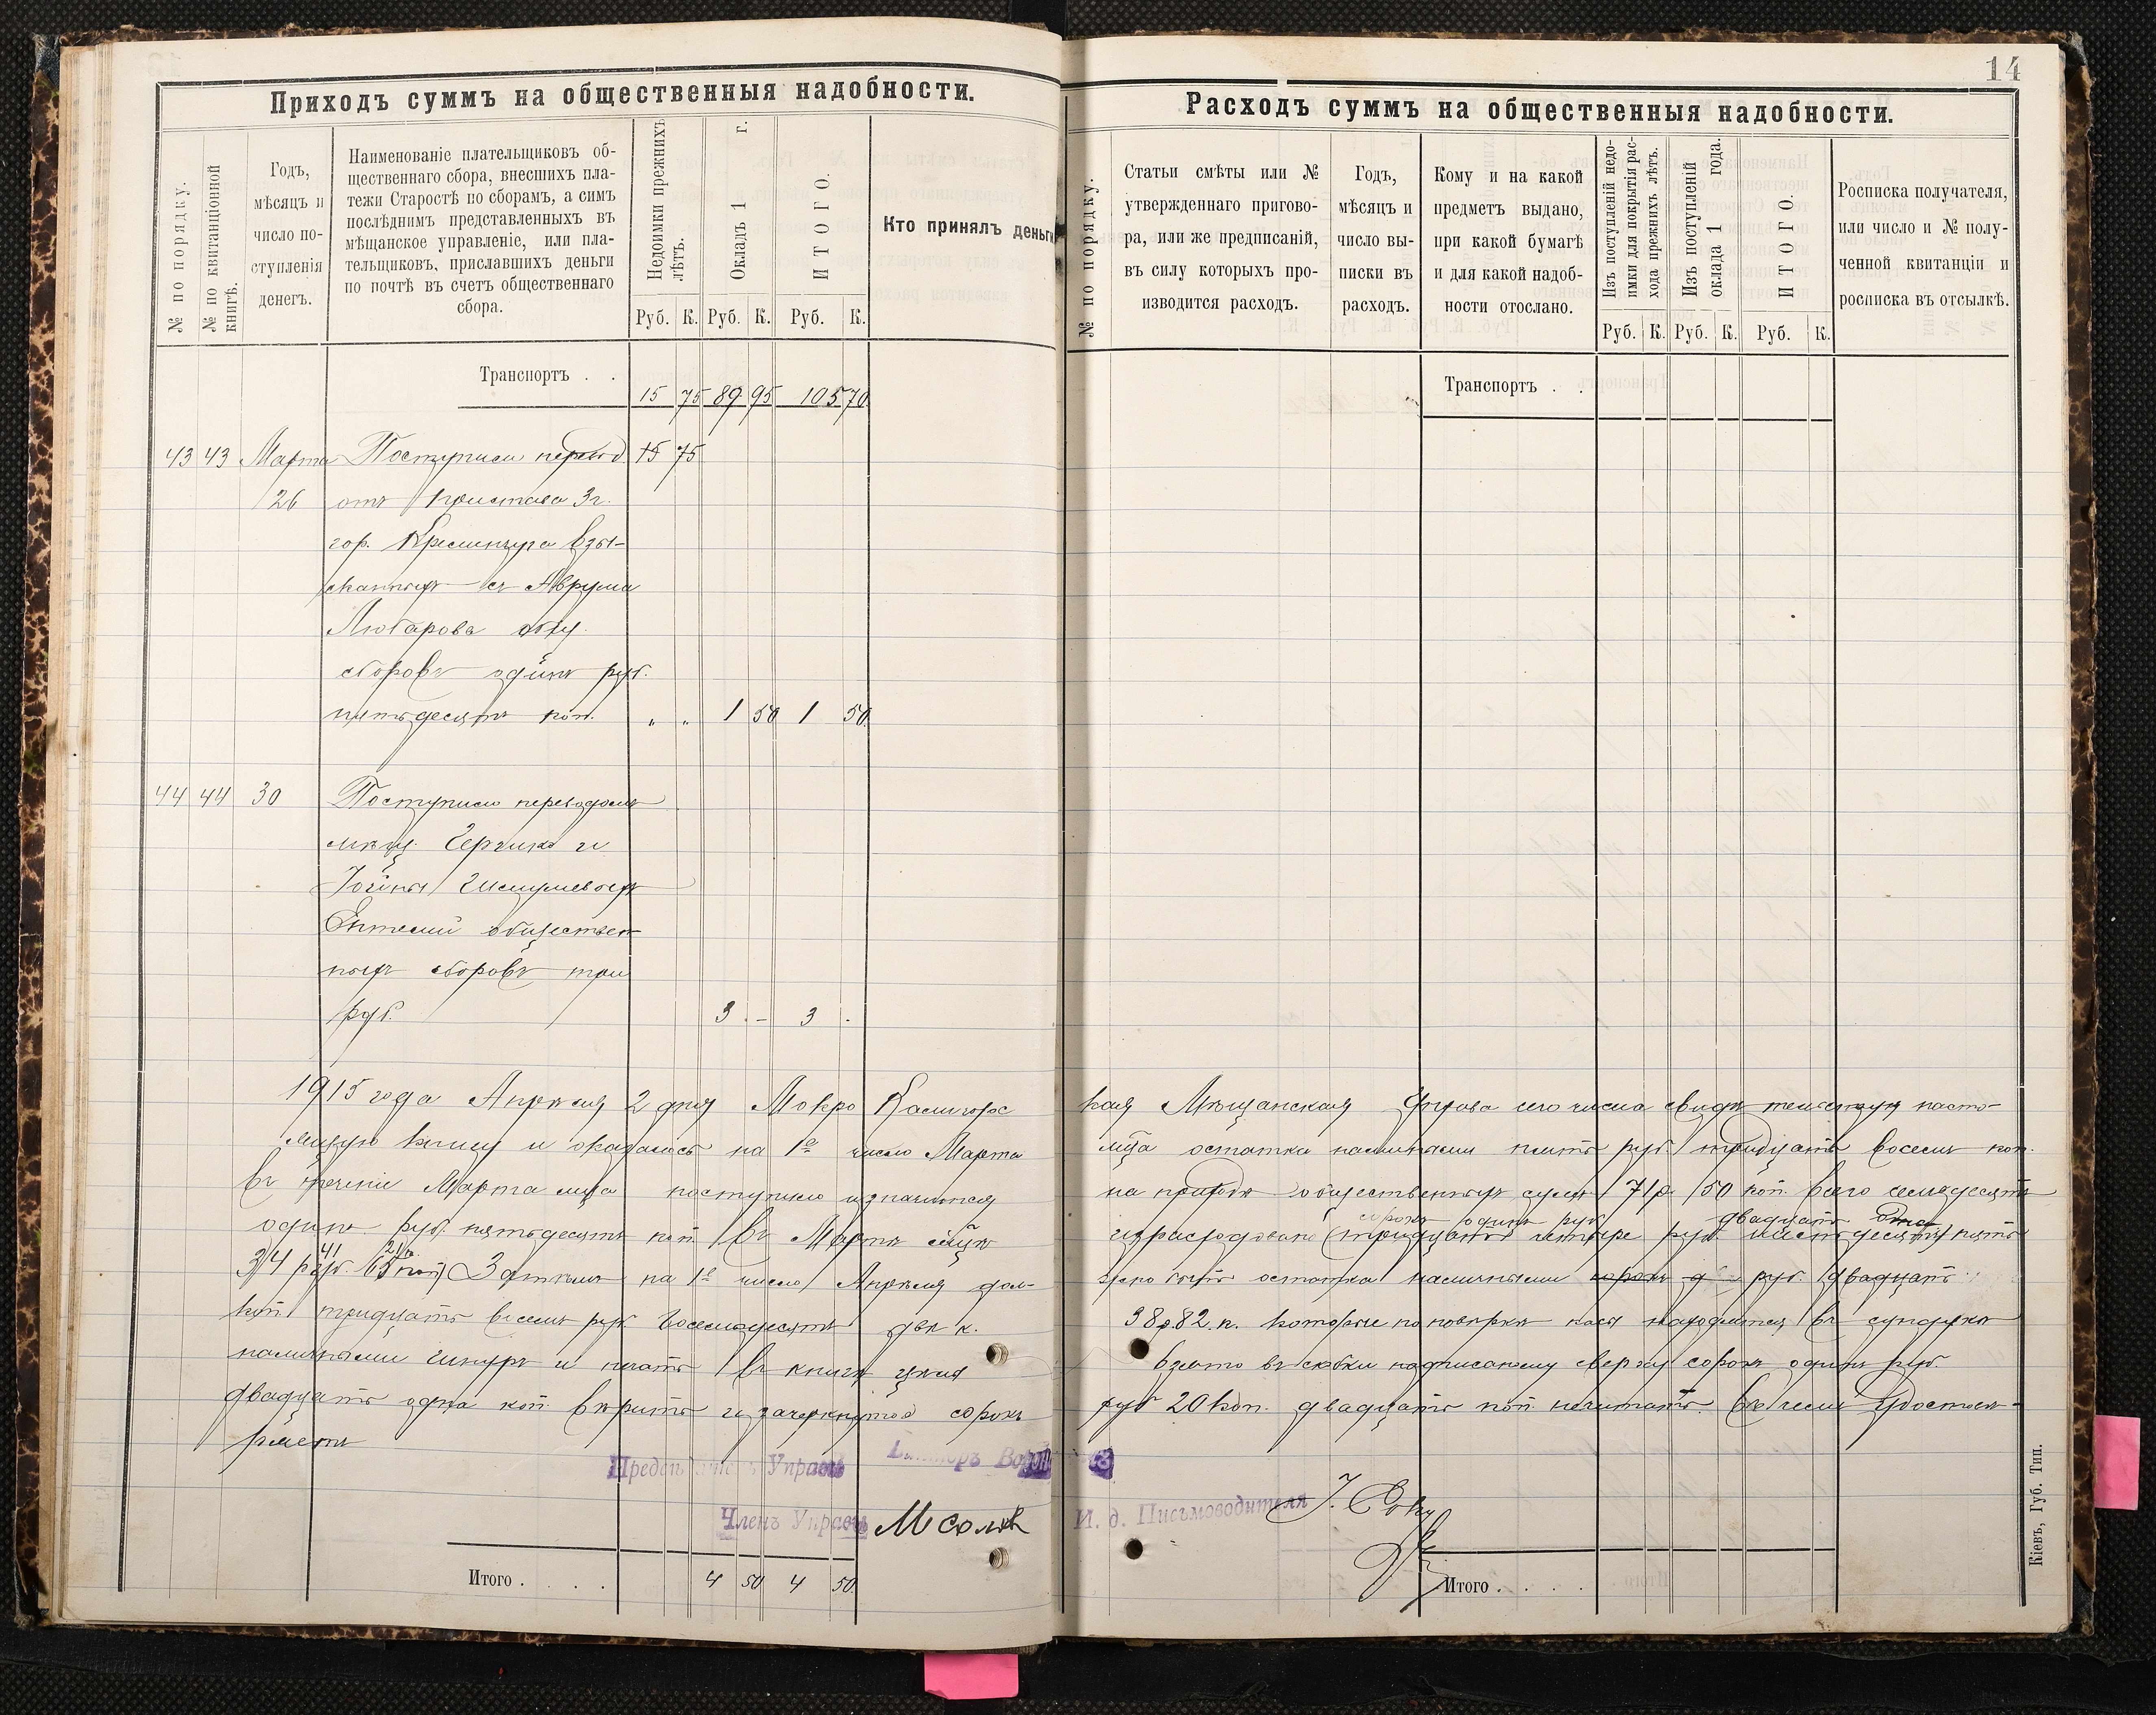 14
Приходъ суммъ на общественныя надобности.
№ по порядку.
№ по квитанціонной
книгѣ.
Годъ,
мѣсяцъ и
число по-
ступленія
денегъ.
Наименованіе плательщиковъ об-
щественнаго сбора, внесшихъ пла-
тежи Старостѣ по сборамъ, а симъ
послѣднимъ представленныхъ въ
мѣщанское управленіе, или пла-
тельщиковъ, приславшихъ деньги
по почтѣ въ счетъ общественнаго
сбора.
Недоимки прежнихъ
лѣтъ.
Окладъ 1 г.
ИТОГО.
Руб. К. Руб. К. Руб. К.
Кто принялъ деньги
Транспортъ . .
15 75 89 95 105 70
43 43 Марта Поступило 15 75
26 отъ Пристава 3 г.
гор. Кременчуга взы-
сканныхъ съ Аврума
Любарова общ.
сборовъ одинъ руб.
пятьдесятъ коп. " " 1 50 1 50
44 44 30 Поступило переводомъ
и
общест­вен-
ныхъ сборовъ три
руб. 3 - 3 -
Расходъ суммъ на общественныя надобности.
№ по порядку.
Статьи смѣты или №
утвержденнаго пригово-
ра, или же предписаній,
въ силу которыхъ про-
изводится расходъ.
Годъ,
мѣсяцъ и
число вы-
писки въ
расходъ.
Кому и на какой
предметъ выдано,
при какой бумагѣ
и для какой надоб-
ности отослано.
Изъ поступленій недо-
имки для покрытія рас-
хода прежнихъ лѣтъ.
Изъ поступленій
оклада 1 года.
ИТОГО.
Руб. К. Руб. К. Руб. К.
Росписка получателя,
или число и № полу-
ченной квитанціи и
росписка въ отсылкѣ.
Транспортъ . .
1915 года Апрѣля 2 дня Мокро Калигорс кая Мѣщанская Управа сего числа свидѣтельствуя насто-
ящую книгу и оказалось на 1е число Марта м-ца остатка наличными пять руб. тридцать восемь коп.
въ теченіи Марта м-ца поступило и значится на приходѣ общественныхъ суммъ 71 р. 50 коп. всего семьдесятъ
сорокъ одинъ руб. двадцать одна
одинъ руб. пятьдесятъ коп. въ Мартѣ м-цѣ израсходовано (тридцать четыре руб. шестьдесятъ) пять
41 21 к.
34 руб. 65 коп) Затѣмъ на 1е число Апрѣля дол- жно быть остатка наличными сорокъ руб. двадцать
коп. тридцать восемь руб. восемьдесятъ двѣ к. 38 р. 82 к. которые по повѣркѣ находятся въ сундукѣ
наличными шнуръ и печать въ книгѣ цѣлы взято въ скобки надписанному сверху сорокъ одинъ руб.
двадцать одна коп. вѣрить и зачеркнутое сорокъ руб 20 коп. двадцать коп. нечитать. въ чемъ удостовѣ-
ряетъ
Управы
Членъ Управы
И. д. Письмоводителя
Итого . . . . 4 50 4 50
Итого . . . .
Кіевъ, Губ. Тип.